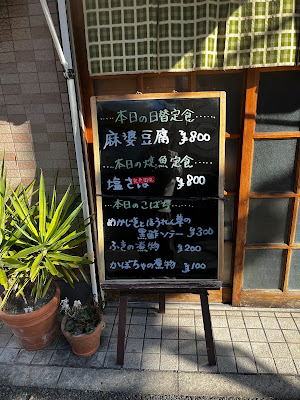 本日の日替定食
麻婆豆腐 ¥800
本日の焼魚定食
塩さば ¥800
本日のこばち
めかじきとほうれん草の
黒酢ソテー ¥300
ふきの煮物 ¥200
かぼちゃの煮物 ¥100